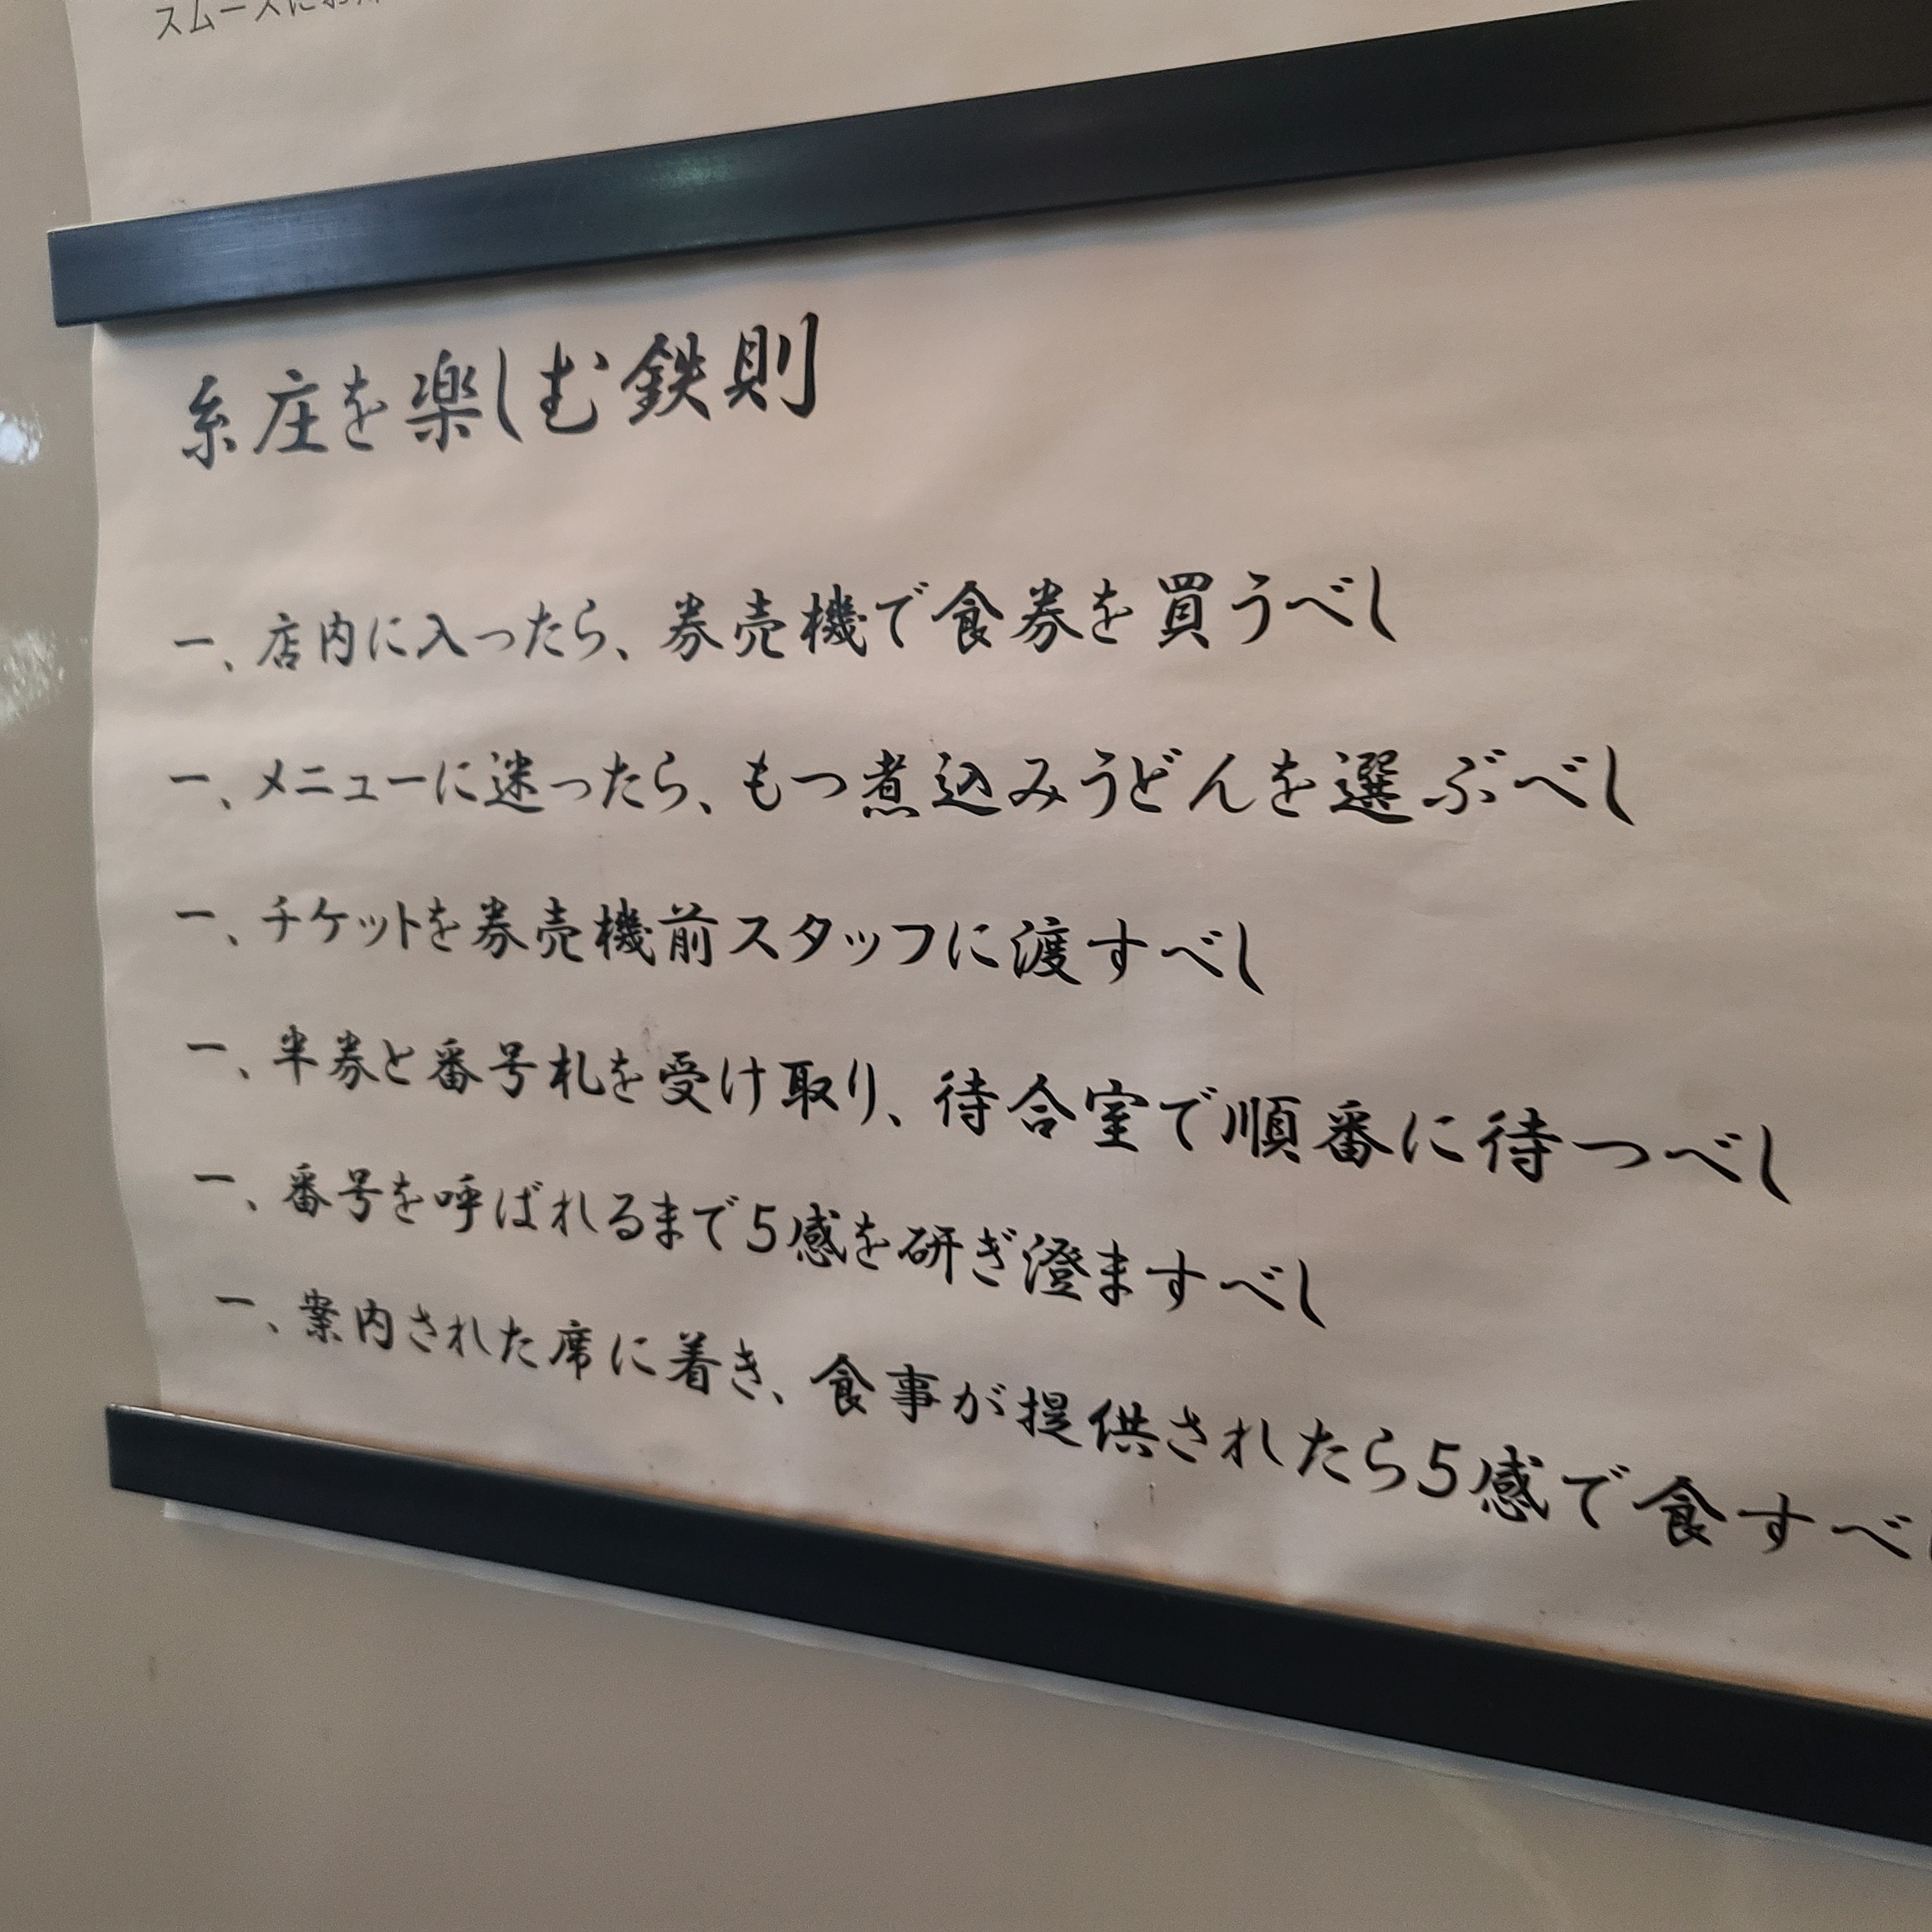 スムーズにお
糸庄を楽しむ鉄則
一、店内に入ったら、券売機で食券を買うべし
一、メニューに迷ったら、もつ煮込みうどんを選ぶべし
一、チケットを券売機前スタッフに渡すべし
一、半券と番号札を受け取り、待合室で順番に待つべし
一、番号を呼ばれるまで5感を研ぎ澄ますべし
一、案内された席に着き、食事が提供されたら5感で食すべ